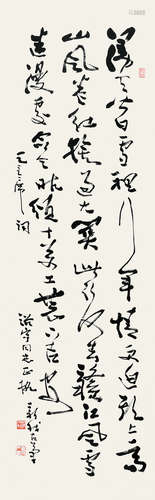 漫天皆白雪裡行军情更迫头上高
山风卷红旗过大关此行何去赣江风雪
迷漫处命令昨颁十万工农下吉安
毛主席词
同志正